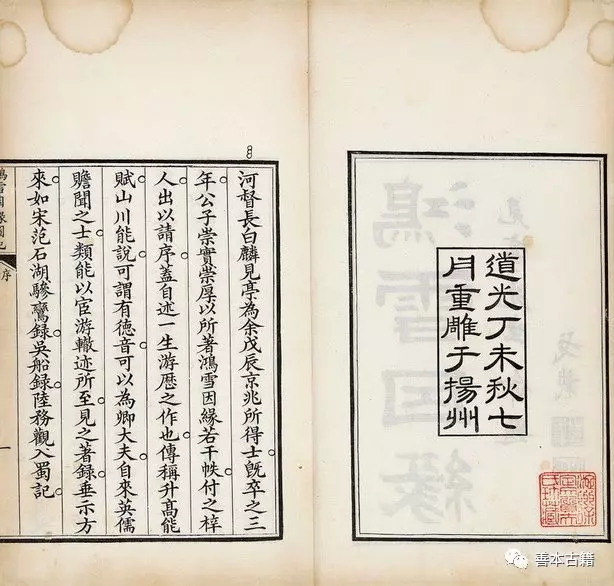 道光丁未秋七
月重雕于揚州
鴻雪因緣
河督長白麟見亭為余戊辰京兆所得士旣卒之三
年公子崇實崇厚以所著鴻雪因緣若干帙付之梓
人出以請序蓋自述一生游歷之作也傳稱升高能
賦山川能說可謂有德音可以為卿大夫自來英儒
贍聞之士類能以宦游轍迹所至見之著錄垂示方
來如宋范石湖驂鸞錄吳船錄陸務觀入蜀記
鴻雪因緣圖記
序
一
善本古籍